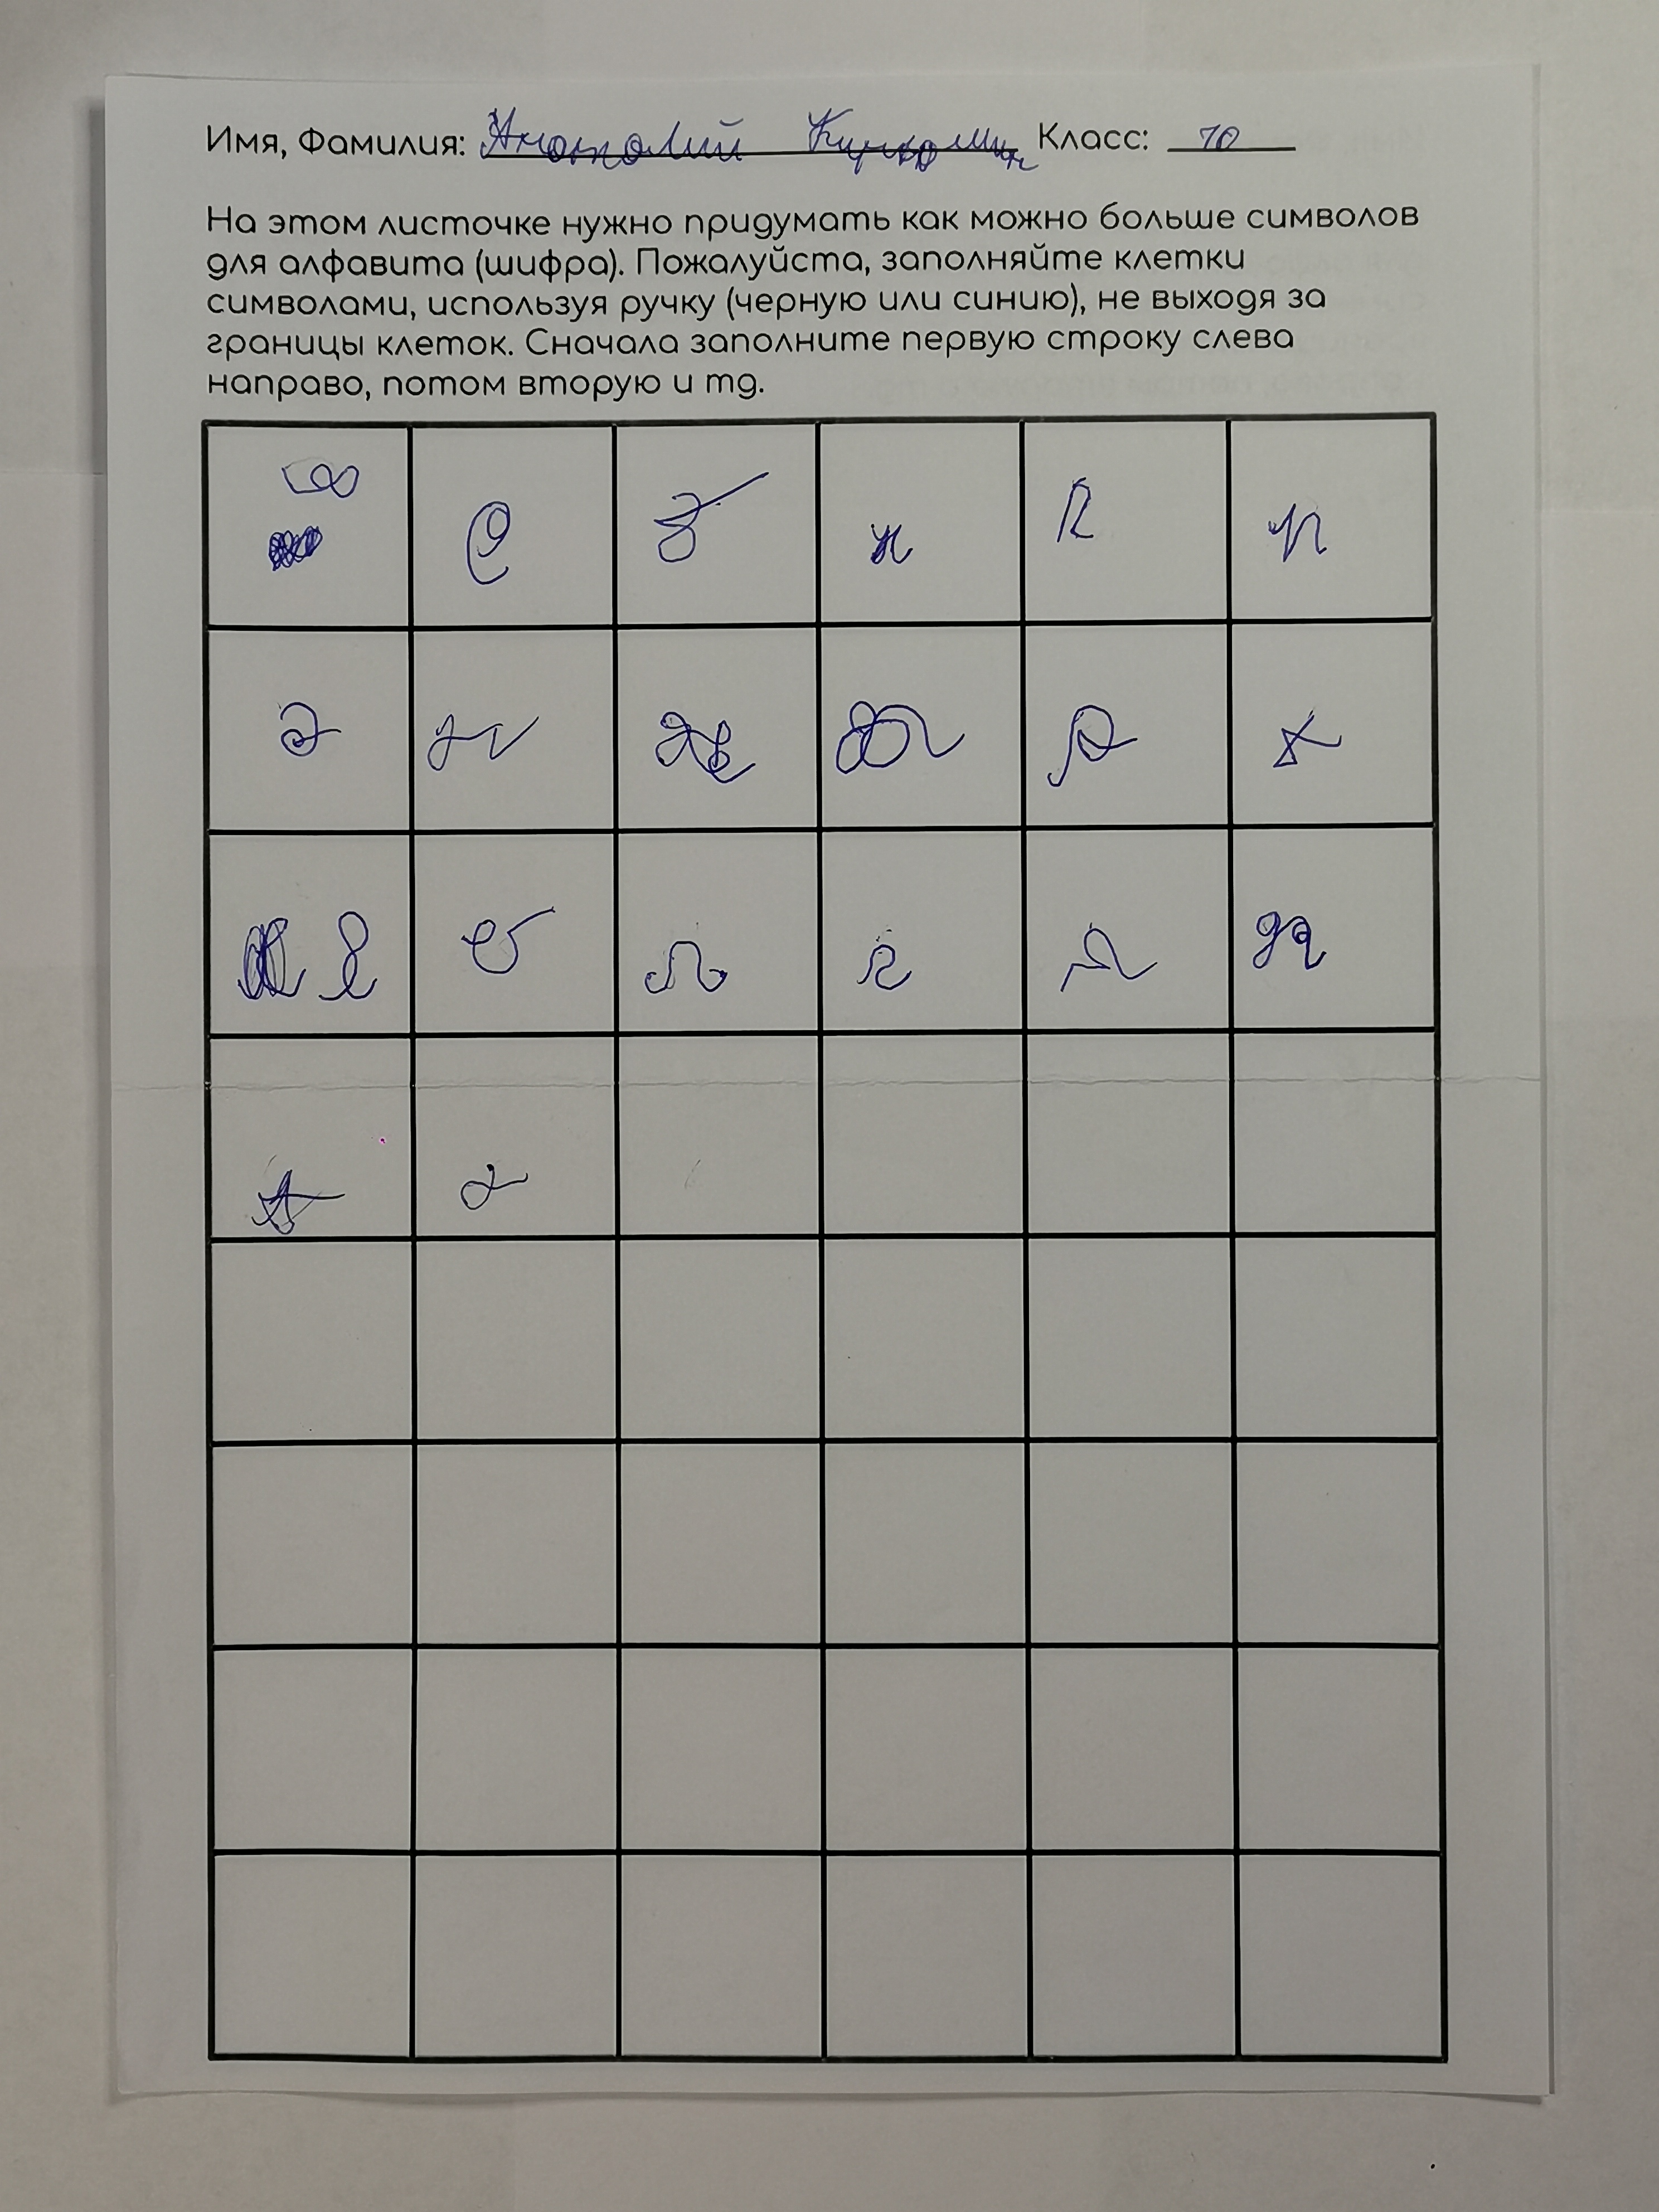 Имя, Фамилия: Анатолий Класс: 10
На этом листочке нужно придумать как можно больше символов
для алфавита (шифра). Пожалуйста, заполняйте клетки
символами, используя ручку (черную или синию), не выходя за
границы клеток. Сначала заполните первую строку слева
направо, потом вторую и тд.